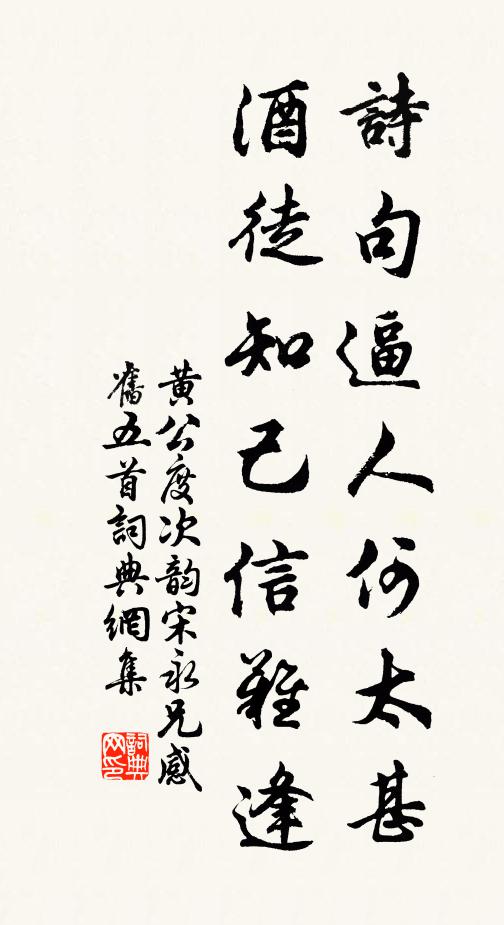 詩句逼人何太甚
酒徒知己信難逢
黄公度次韵宋永兄感
舊五首詞典網集
詞典
网印